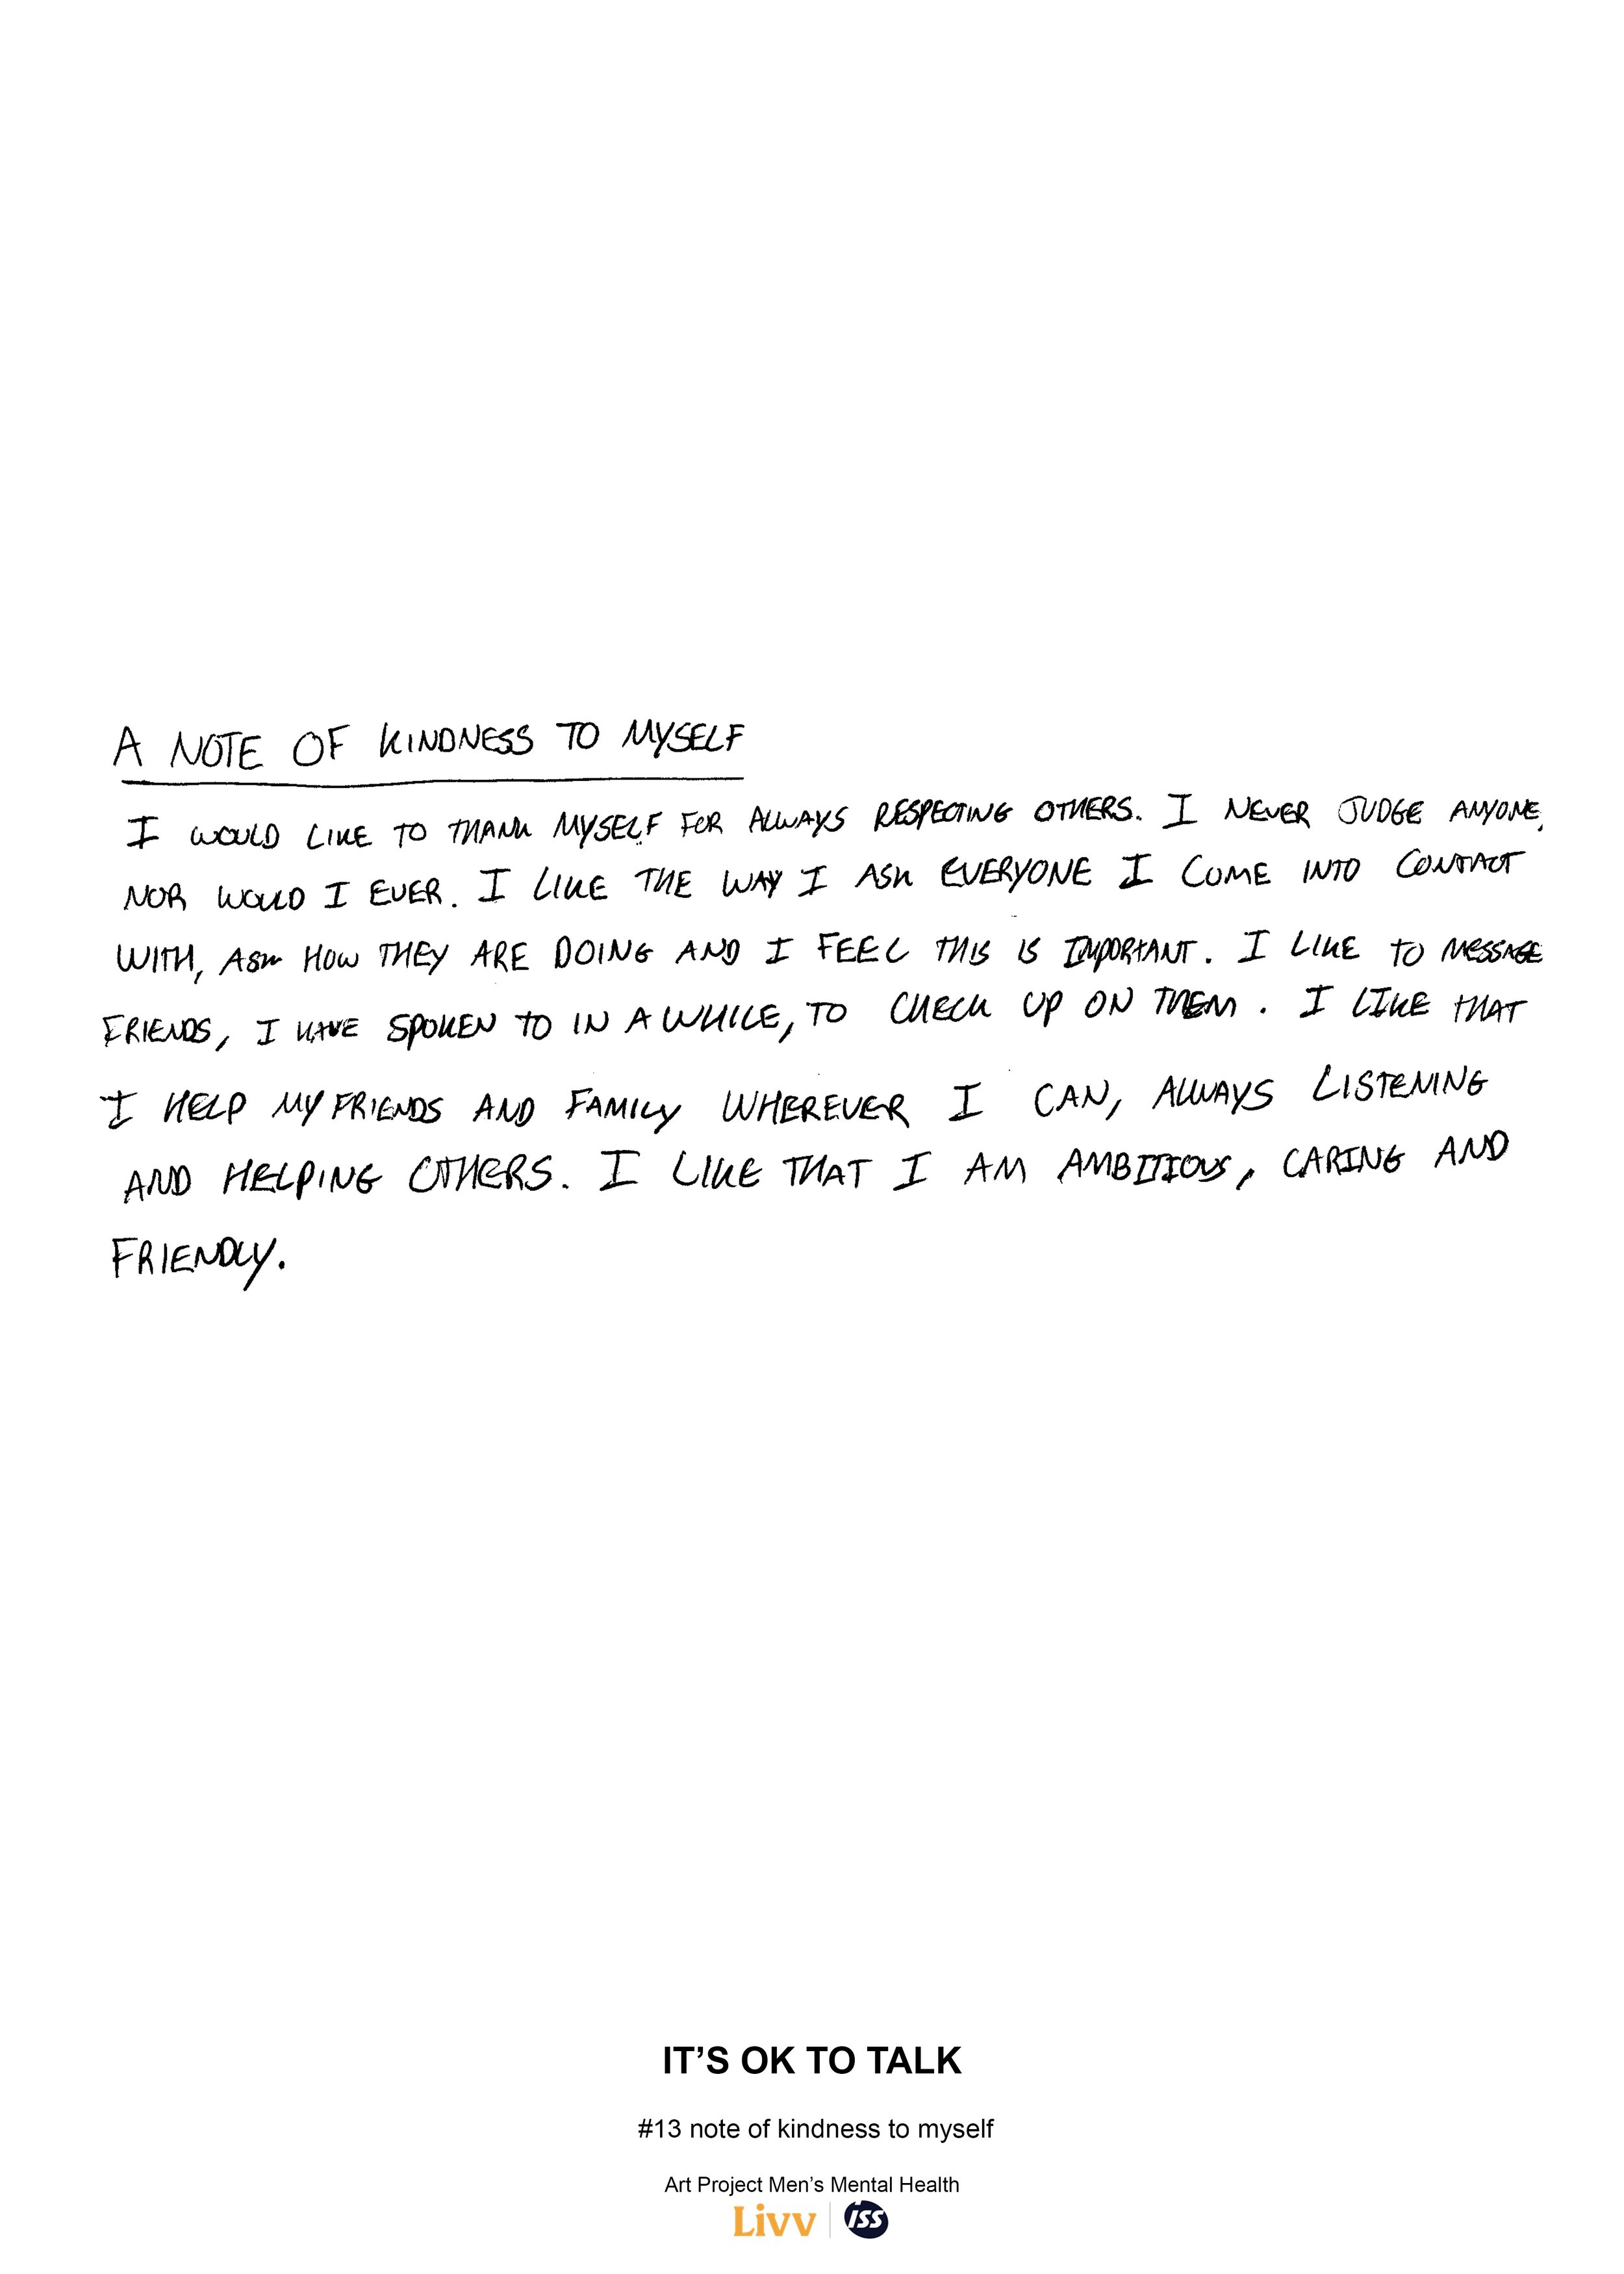 A NOTE OF KINDNESS TO MYSELF
I WOULD LIKE TO THANK MYSELF FOR ALWAYS RESPECTING OTHERS. I NEVER JUDGE ANYONE,
NOR WOULD I EVER. I LIKE THE WAY I ASK EVERYONE I COME INTO CONTACT
WITH, ASK HOW THEY ARE DOING AND I FEEL THIS IS IMPORTANT. I LIKE TO MESSAGE
FRIENDS, I HAVE SPOKEN TO IN A WHILE, TO CHECK UP ON THEM. I LIKE THAT
I HELP MY FRIENDS AND FAMILY WHEREVER I CAN, ALWAYS LISTENING
AND HELPING OTHERS. I LIKE THAT I AM AMBITIOUS, CARING AND
FRIENDLY.
IT’S OK TO TALK
#13 note of kindness to myself
Art Project Men’s Mental Health
Livv ISS